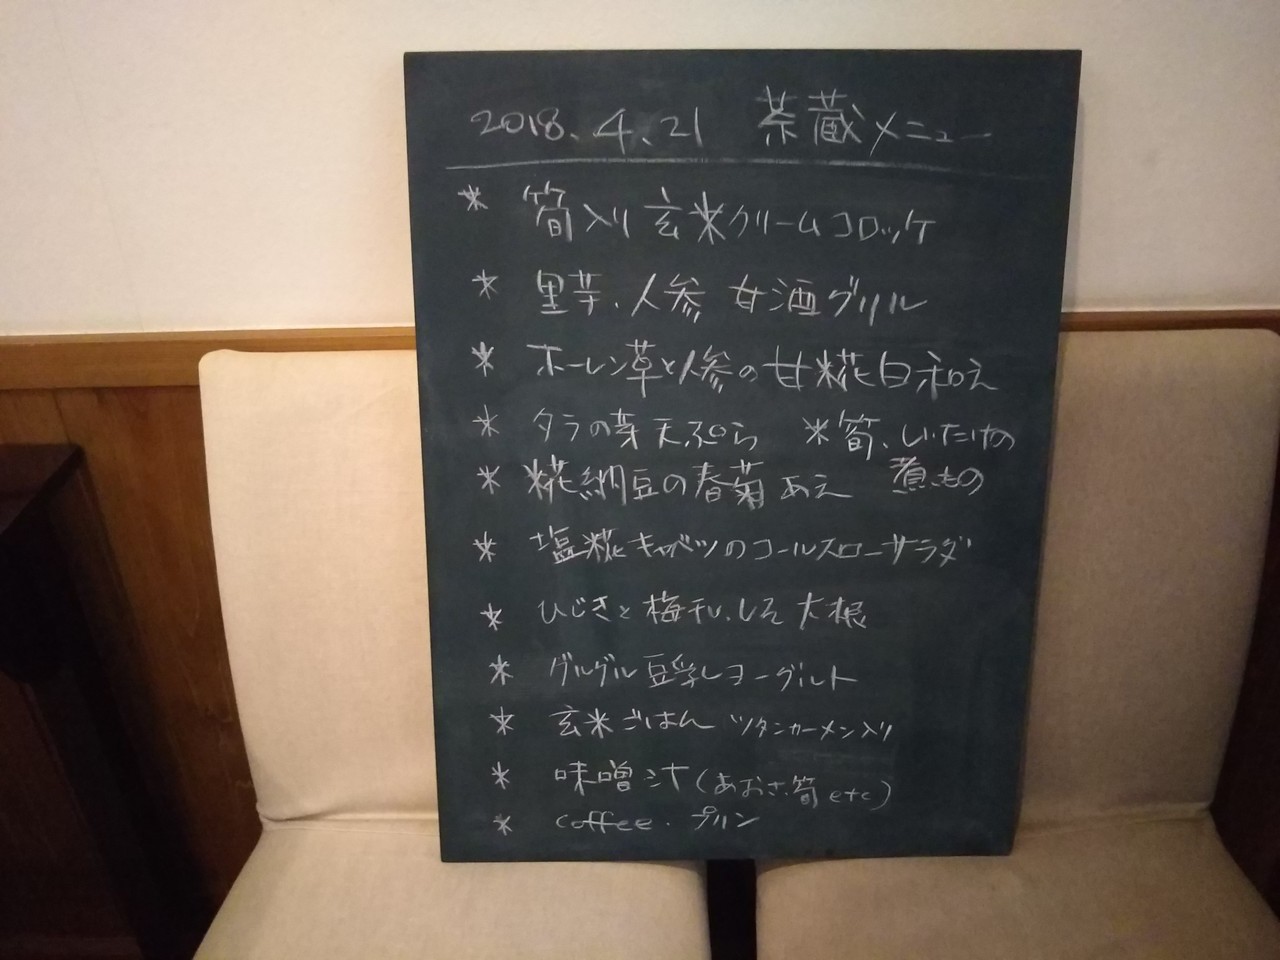 2018.4.21 茶蔵メニュー
* 筍入り玄米クリームコロッケ
* 里芋、人参 甘酒グリル
* ホーレン草と人参の甘糀白和え
* タラの芽天ぷら ※筍、しいたけの
* 糀納豆の春菊あえ 煮もの
* 塩糀キャベツのコールスローサラダ
* ひじきと梅干し、しそ 大根
* グルグル豆乳レヨーグルト
* 玄米ごはん ツタンカーメン入り
* 味噌汁(あおさ、筍 etc)
* coffee. プリン